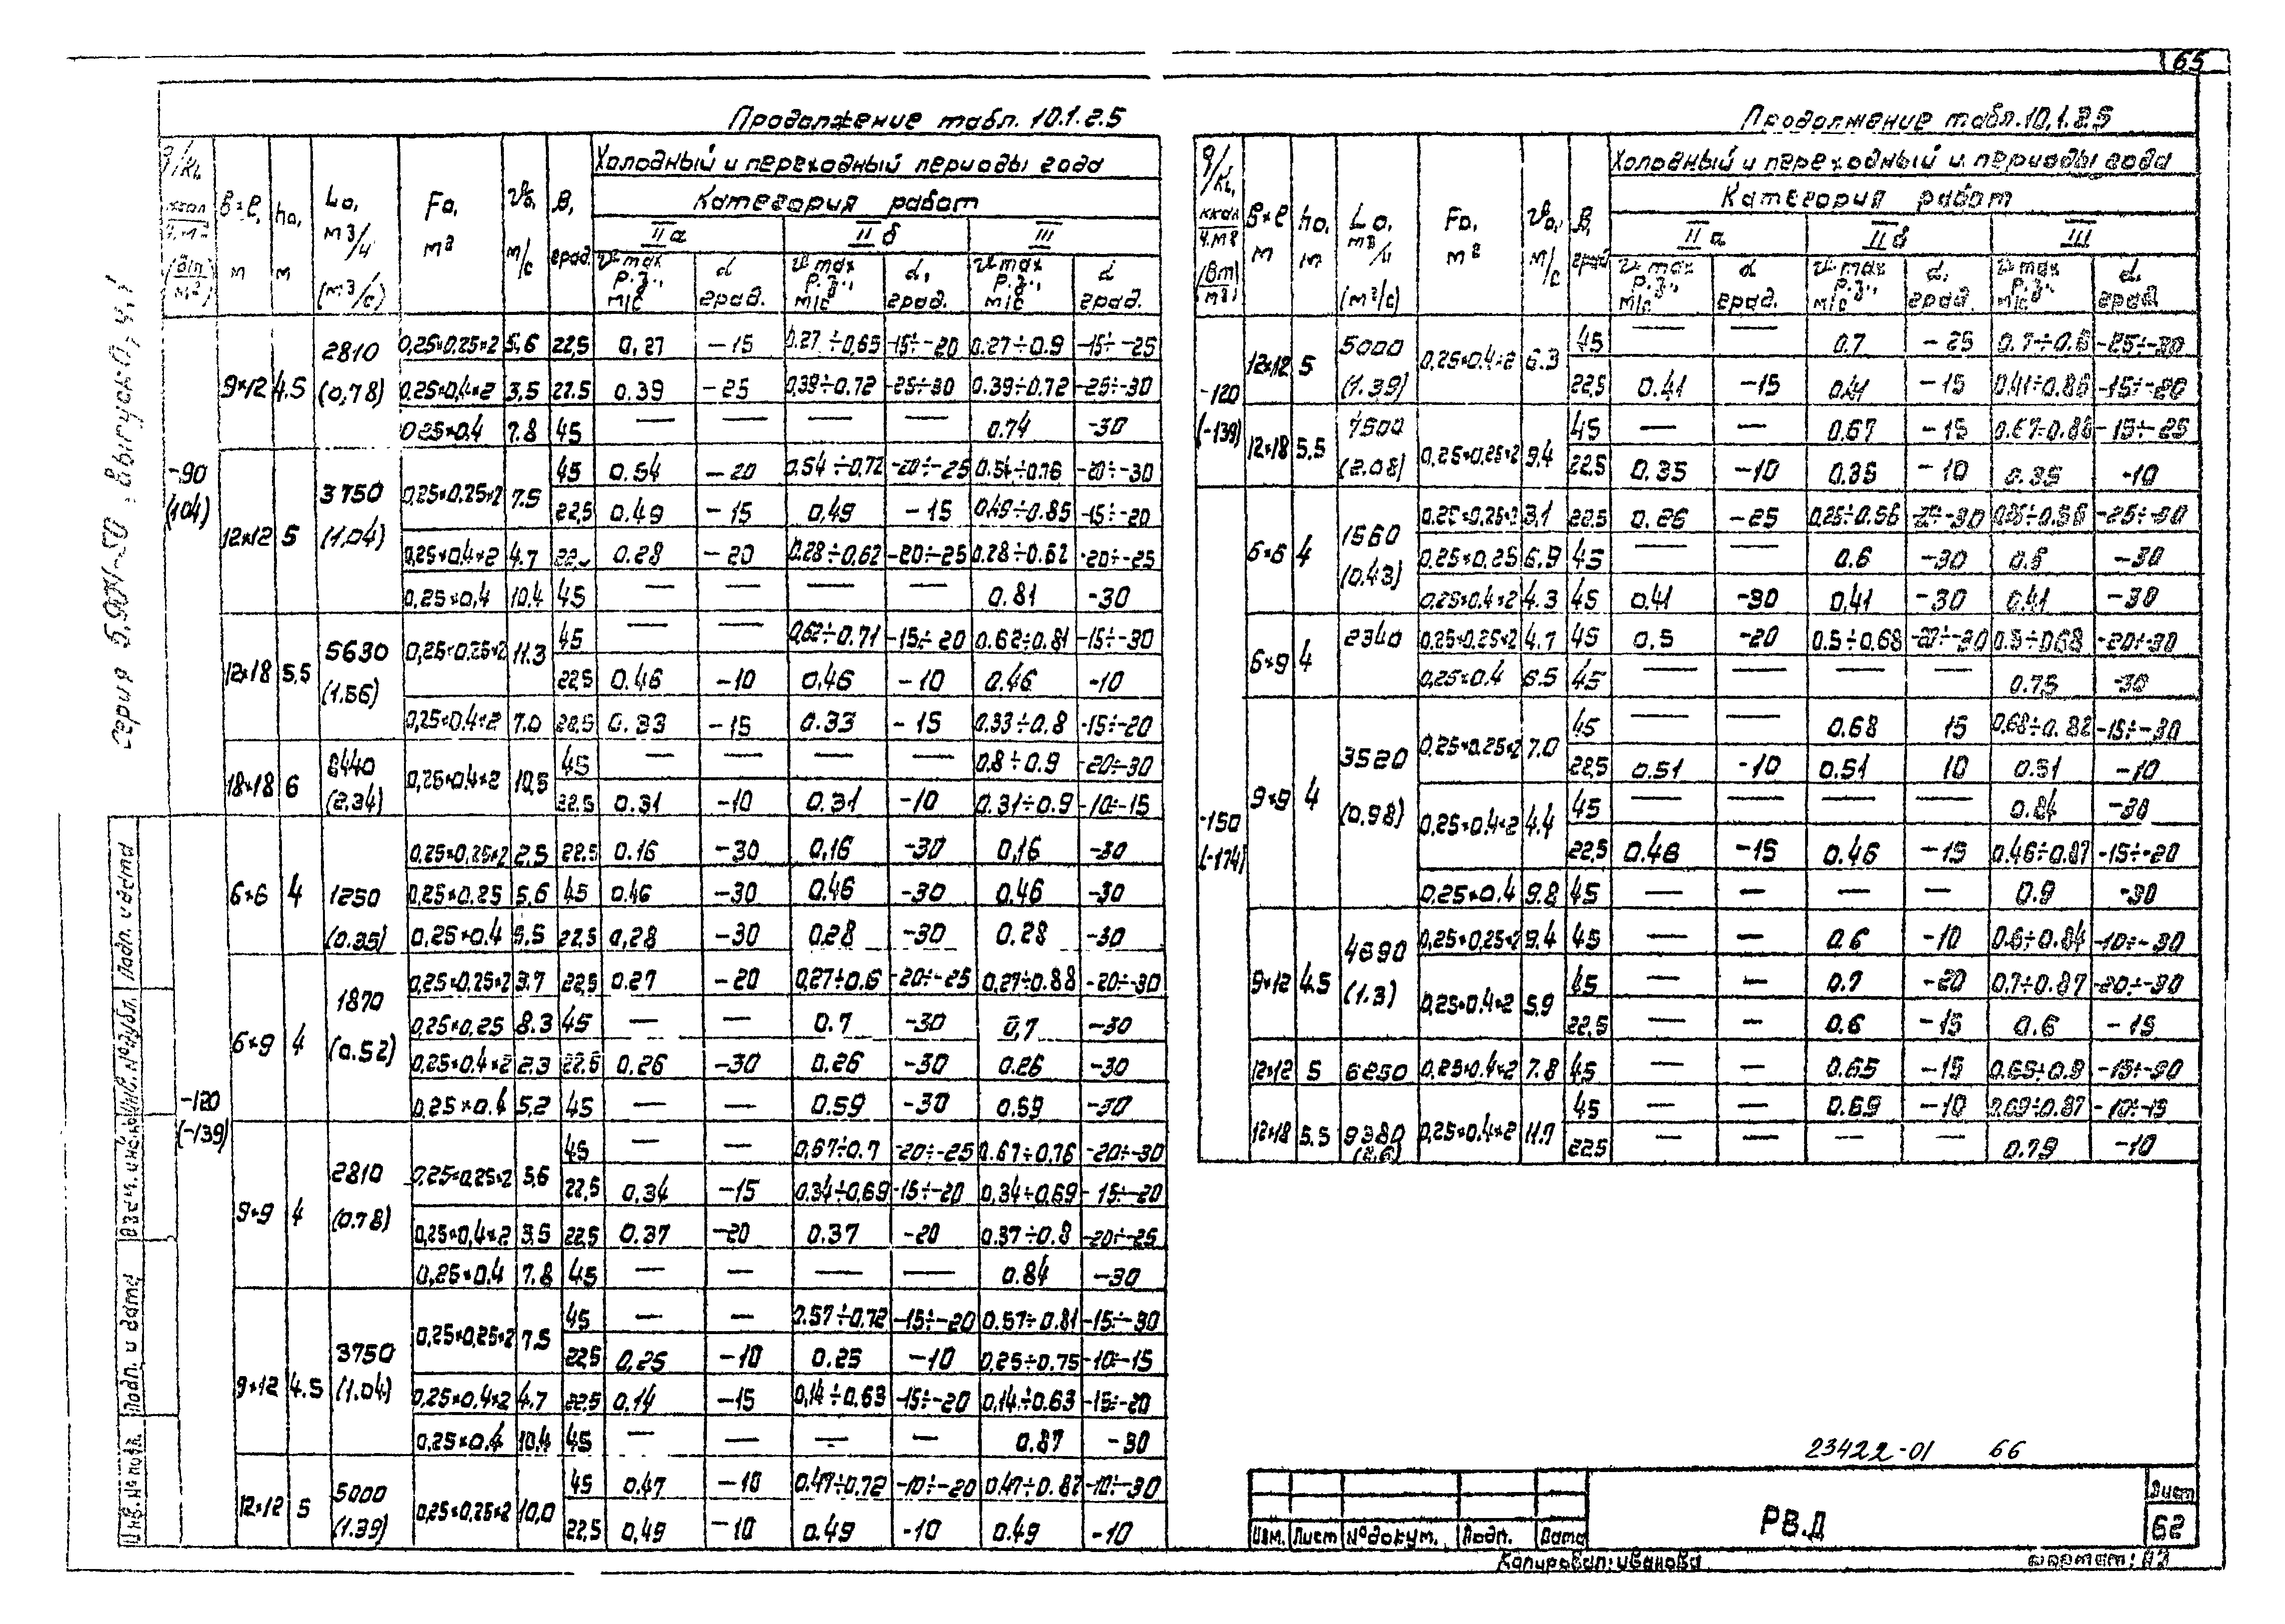 65
Продолжение табл. 10.1.2.5
Холодный и переходный периоды года
Категория работ
q/k, ккал/ч.м² (Вт/м²) | B×ℓ, м | h₀, м | L₀, м³/ч (м³/с) | F₀, м² | V₀, м/с | β, град. | IIа | IIб | III
v max р.з., м/с | α град. | v max р.з., м/с | α, град. | v max р.з., м/с | α град.
-90 (104)
9×12 4.5 2810 (0,78) 0,25×0,25×2 5,6 22,5 0,27 -15 0.27÷0,65 -15÷-20 0.27÷0.9 -15÷-25
0,25×0,4×2 3,5 22.5 0.39 -25 0,39÷0.72 -25÷30 0.39÷0.72 -25÷-30
0.25×0.4 7.8 45 — — — — 0.74 -30
12×12 5 3750 (1,04) 0,25×0.25×2 7.5 45 0.54 -20 0.54÷0,72 -20÷-25 0.54÷0.76 -20÷-30
22,5 0.49 -15 0,49 -15 0,49÷0.85 -15÷-20
0,25×0.4×2 4.7 0.28 -20 0.28÷0,62 -20÷-25 0.28÷0.62 -20÷-25
0,25×0,4 10.4 45 — — — — 0.81 -30
12×18 5,5 5630 (1.56) 0,25×0,25×2 11.3 45 — — 0,62÷0.71 -15÷-20 0.62÷0.81 -15÷-30
22,5 0.46 -10 0,46 -10 0.46 -10
0,25×0.4×2 7.0 22,5 0.33 -15 0.33 -15 0,33÷0.8 -15÷-20
18×18 6 8440 (2,34) 0,25×0.4×2 10,5 45 — — — — 0.8÷0.9 -20÷-30
22.5 0.31 -10 0.31 -10 0.31÷0.9 -10÷-15
-120 (-139)
6×6 4 1250 (0.35) 0,25×0,25×2 2,5 22.5 0.16 -30 0,16 -30 0,16 -30
0,25×0.25 5.6 45 0.46 -30 0.46 -30 0.46 -30
0,25×0.4 3,5 22,5 0,28 -30 0.28 -30 0.28 -30
6×9 4 1870 (0.52) 0,25×0,25×2 3.7 22,5 0.27 -20 0,27÷0.6 -20÷-25 0,27÷0.88 -20÷-30
0,25×0,25 8.3 45 — — 0.7 -30 0,7 -30
0.25×0.4×2 2.3 22.5 0,26 -30 0.26 -30 0.26 -30
0,25×0.4 5,2 45 — — 0.59 -30 0.59 -30
9×9 4 2810 (0.78) 0,25×0,25×2 5,6 45 — — 0,67÷0.7 -20÷-25 0.67÷0,76 -20÷-30
22,5 0,34 -15 0.34÷0,69 -15÷-20 0,34÷0.69 -15÷-20
0,25×0,4×2 3,5 22,5 0.37 -20 0.37 -20 0.37÷0.8 -20÷-25
0,25×0.4 7.8 45 — — — — 0.84 -30
9×12 4.5 3750 (1.04) 0,25×0,25×2 7,5 45 — — 0.57÷0,72 -15÷-20 0.57÷0.81 -15÷-30
22,5 0,25 -10 0.25 -10 0,25÷0.75 -10÷-15
0,25×0,4×2 4.7 22,5 0.14 -15 0,14÷0,63 -15÷-20 0,14÷0.63 -15÷-20
0,25×0.4 10,4 45 — — — — 0.87 -30
12×12 5 5000 (1.39) 0,25×0,25×2 10,0 45 0.47 -10 0.47÷0,72 -10÷-20 0,47÷0.82 -10÷-30
22,5 0,49 -10 0.49 -10 0.49 -10
Продолжение табл.10,1.2.5
Холодный и переходный и периоды года
Категория работ
q/k, ккал/ч.м² (Вт/м²) | B×ℓ м | h₀, м | L₀, м³/ч (м³/с) | F₀, м² | V₀, м/с | β, град | IIа | IIб | III
v max р.з., м/с | α град. | v max р.з., м/с | α, град. | v max р.з., м/с | α, град
-120 (-139)
12×12 5 5000 (1.39) 0,25×0.4×2 6.3 45 — — 0.7 -25 -25÷-30
22,5 0.41 -15 0,41 -15 0,41÷0.86 -15÷-20
12×18 5.5 7500 (2.08) 0,25×0,25×2 9,4 45 — — 0.67 -15 0.67÷0.86 -15÷-25
22,5 0.35 -10 0.35 -10 0.35 -10
-150 (-174)
6×6 4 1560 (0,43) 0,25×0,25×2 3,1 22,5 0.26 -25 0,26÷0.56 -25÷-30 0,26÷0.56 -25÷-30
0,25×0,25 6.9 45 — — 0.6 -30 0.6 -30
0,25×0.4×2 4.3 45 0,41 -30 0,41 -30 0.41 -30
6×9 4 2340 0,25×0,25×2 4.7 45 0,5 -20 0.5÷0,68 -20÷-30 0.5÷0.68 -20÷-30
0,25×0.4 6.5 45 — — — — 0.75 -30
9×9 4 3520 (0.98) 0,25×0,25×2 7.0 45 — — 0.68 15 0,68÷0.82 -15÷-30
22,5 0.51 -10 0.51 10 0.51 -10
0,25×0.4×2 4.4 45 — — — — 0.84 -30
22,5 0.46 -15 0.46 -15 0.46÷0.87 -15÷-20
0,25×0.4 9.8 45 — — — — 0.9 -30
9×12 4.5 4690 (1.3) 0,25×0,25×2 9.4 45 — — 0.6 -10 0.6÷0.84 -10÷-30
0,25×0.4×2 5.9 45 — — 0.7 -20 0,7÷0.87 -20÷-30
22,5 — — 0.6 -15 0.6 -15
12×12 5 6250 0,25×0.4×2 7.8 45 — — 0.65 -15 0.65÷0.9 -15÷-30
12×18 5.5 9380 (2,6) 0,25×0.4×2 11.7 45 — — 0.69 -10 0.69÷0.87 -10÷-15
22,5 — — — — 0.79 -10
серия 5.904-50, выпуск 0, ч.1
Инв. № подл. Подп. и дата Взам. инв. № Инв. № дубл. Подп. и дата
23422-01 66
Изм. Лист № докум. Подп. Дата
РВ.Д
Лист
62
Копировал: Иванова
формат: А3